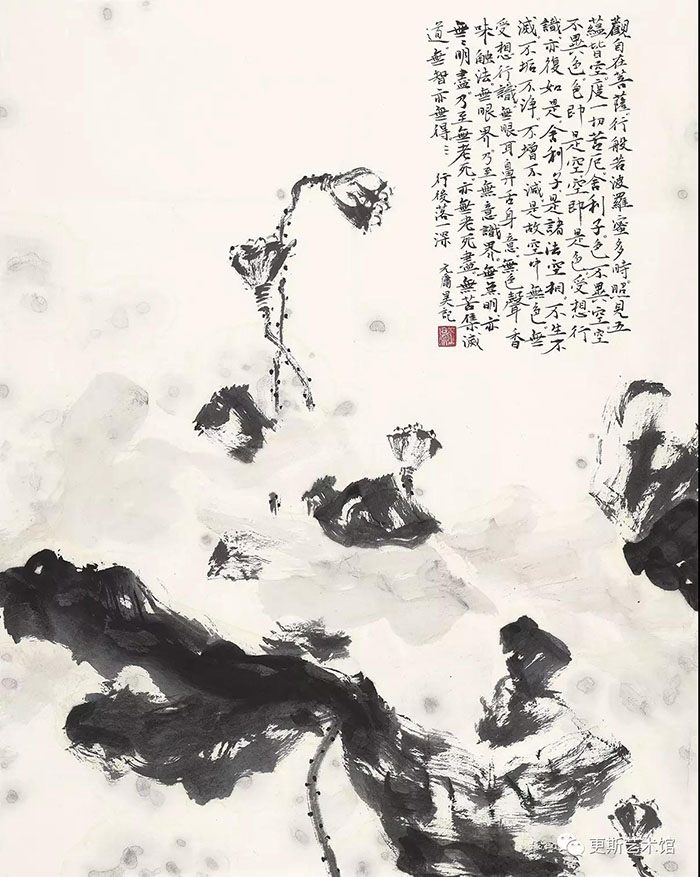 觀自在菩薩。行般若波羅蜜多時。照見五
蘊皆空。度一切苦厄。舍利子。色不異空。空
不異色。色即是空。空即是色。受想行
識。亦復如是。舍利子。是諸法空相。不生不
滅。不垢不淨。不增不減。是故空中無色。無
受想行識。無眼耳鼻舌身意。無色聲香
味觸法。無眼界。乃至無意識界。無無明。亦
無〻明盡。乃至無老死。亦無老死盡。無苦集滅
道。無智亦無得〻
更斯艺术馆